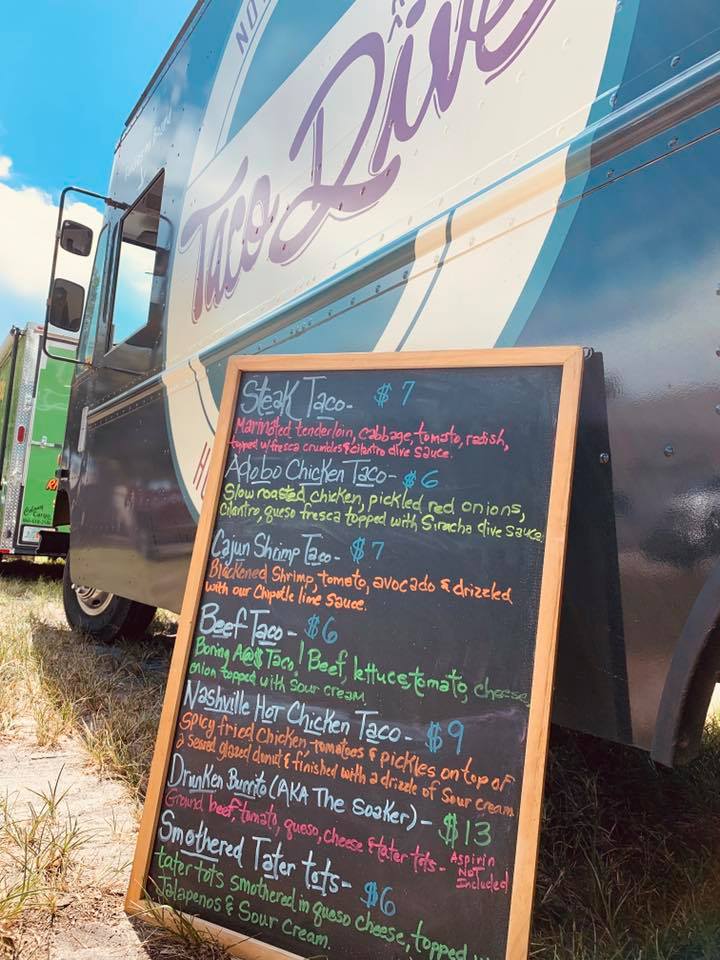 NO
Taco Dive
Steak Taco- $7
Marinated tenderloin, cabbage, tomato, radish,
topped w/fresca crumbles & cilantro dive sauce.
Adobo Chicken Taco- $6
Slow roasted chicken, pickled red onions,
cilantro, queso fresca topped with Siracha dive sauce
Cajun Shrimp Taco- $7
Blackened Shrimp, tomato, avocado & drizzled
with our Chipotle lime sauce.
Beef Taco- $6
Boring A@$ Taco! Beef, lettuce, tomato, cheese,
onion topped with sour cream
Nashville Hot Chicken Taco- $9
Spicy fried chicken, tomatoes & pickles on top of
a seared glazed donut & finished with a drizzle of sour cream
Drunken Burrito (AKA The Soaker)- $13
Ground beef, tomato, queso, cheese & tater tots- Aspirin
Not
Included
Smothered Tater tots- $6
tater tots smothered in queso cheese, topped
Jalapenos & Sour Cream.